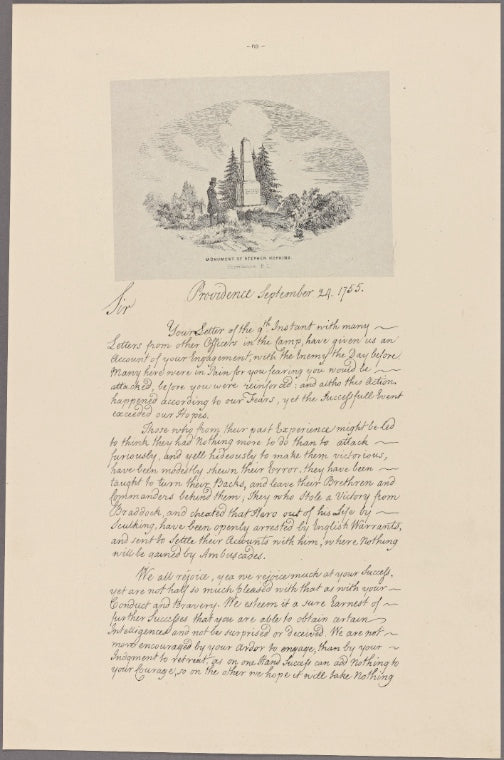 MONUMENT OF STEPHEN HOPKINS.
PROVIDENCE R. I.
Providence September 24. 1755.
Sir
Your Letter of the 9th Instant with many
Letters from other Officers in the Camp, have given us an
Account of your Engagement, with the Enemy the Day before
Many here were in Pain for you fearing you would be
attacked, before you were reinforced: and altho this Action
happened according to our Fears, yet the Successfull Event
exceeded our Hopes.
Those who from their past Experience might be led
to think they had Nothing more to do than to attack
furiously, and yell hideously to make them victorious,
have been modestly shewn their Error. they have been
taught to turn their Backs, and leave their Brethren and
Commanders behind them; they who Stole a Victory from
Braddock, and cheated that Hero out of his Life by
Sculking, have been openly arrested by English Warrants,
and sent to Settle their Accounts with him, where Nothing
will be gained by Ambuscades.
We all rejoice, yea we rejoice much at your Success,
yet are not half so much pleased with that as with your
Conduct and Bravery. We esteem it a sure Earnest of
further Successes that you are able to obtain certain
Intelligence and not be surprised or deceived. We are not
more encouraged by your Ardor to engage, than by your
Judgment to retreat, as on one Hand Success can add Nothing to
your Courage, so on the other we hope it will take Nothing